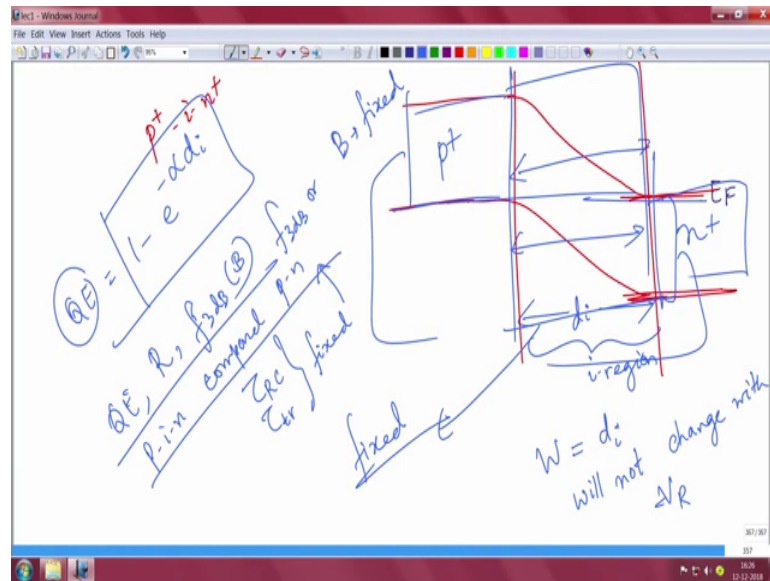 lec1 - Windows Journal
File Edit View Insert Actions Tools Help
p+ -i- n+
QE = 1 - e^-αdi
QE, R, f3dB (B)
p-i-n compared p-n
τRC
τtr } fixed
f3dB or
B → fixed
p+
EF
n+
di
i-region
fixed
W = di
will not change with
VR
367/367
357
16:26
12-12-2018